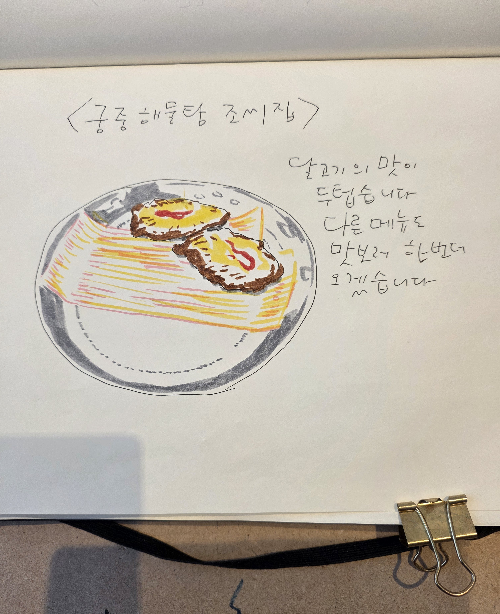 <궁중해물탕 조씨집>
달고기의 맛이
두텁습니다
다른 메뉴도
맛보러 한번더
오겠습니다